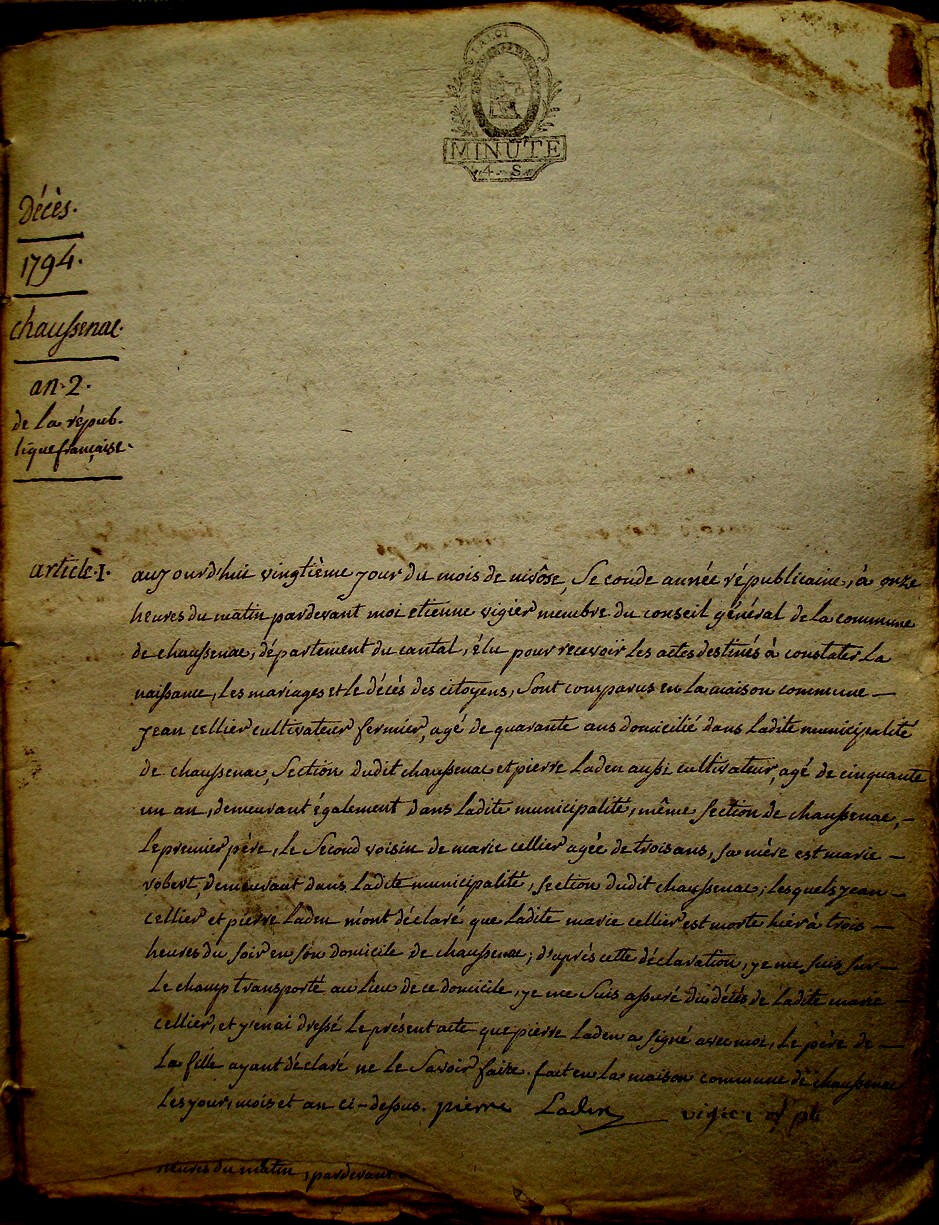 LA LOI
MINUTE
4. S.
Décès.
1794.
chaussenac.
an. 2.
de la répub-
lique française.
article. I.
aujourd'hui vingtième jour du mois de nivôse, Seconde année républicaine, à onze
heures du matin pardevant moi etienne vigier membre du conseil général de la commune
de chaussenac, département du cantal, élu pour recevoir les actes destinés à constater la
naissance, les mariages et le décès des citoyens, Sont comparus en la maison commune —
jean cellier cultivateur fermier, agé de quarante ans domicilié dans ladite municipalité
de chaussenac, Section dudit chaussenac et pierre Laden aussi cultivateur, agé de cinquante
un an, demeurant également dans ladite municipalité, même section de chaussenac, —
le premier père, le Second voisin de marie cellier agée de trois ans, sa mère est marie —
robert, demeurant dans ladite municipalité, section dudit chaussenac; lesquels jean —
cellier et pierre Laden m'ont déclaré que ladite marie cellier est morte hier à trois —
heures du soir en son domicile de chaussenac; d'après cette déclaration, je me suis sur —
le champ transporté au lieu de ce domicile, je me suis assuré du décès de ladite marie —
cellier, et j'en ai dressé le présent acte que pierre laden a signé avec moi, le père de —
la fille ayant déclaré ne le Savoir faire. fait en la maison commune de chaussenac
les jour, mois et an ci-dessus. pierre Laden vigier of pb
heures du matin, pardevant